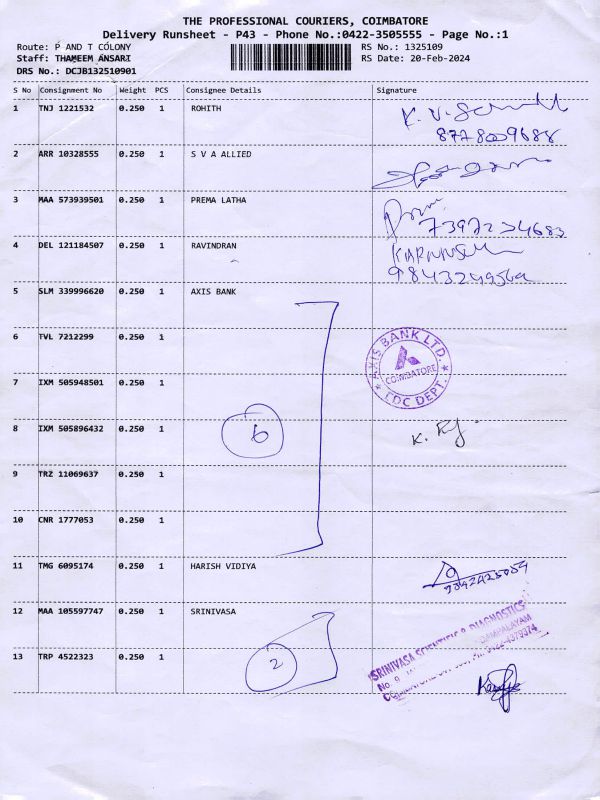 THE PROFESSIONAL COURIERS, COIMBATORE
Delivery Runsheet - P43 - Phone No.:0422-3505555 - Page No.:1
Route: P AND T COLONY
RS No.: 1325109
Staff: THAMEEM ANSARI
RS Date: 20-Feb-2024
DRS No.: DCJB132510901
S No Consignment No Weight PCS Consignee Details Signature
1 TNJ 1221532 0.250 1 ROHITH
2 ARR 10328555 0.250 1 S V A ALLIED
3 MAA 573939501 0.250 1 PREMA LATHA
4 DEL 121184507 0.250 1 RAVINDRAN
5 SLM 339996620 0.250 1 AXIS BANK
6 TVL 7212299 0.250 1
AXIS BANK LTD.
COIMBATORE
CDC DEPT.
7 IXM 505948501 0.250 1
8 IXM 505896432 0.250 1
6
K.
9 TRZ 11069637 0.250 1
10 CNR 1777053 0.250 1
11 TMG 6095174 0.250 1 HARISH VIDIYA
12 MAA 105597747 0.250 1 SRINIVASA
SRINIVASA SCIENTIFIC & DIAGNOSTICS
13 TRP 4522323 0.250 1
2